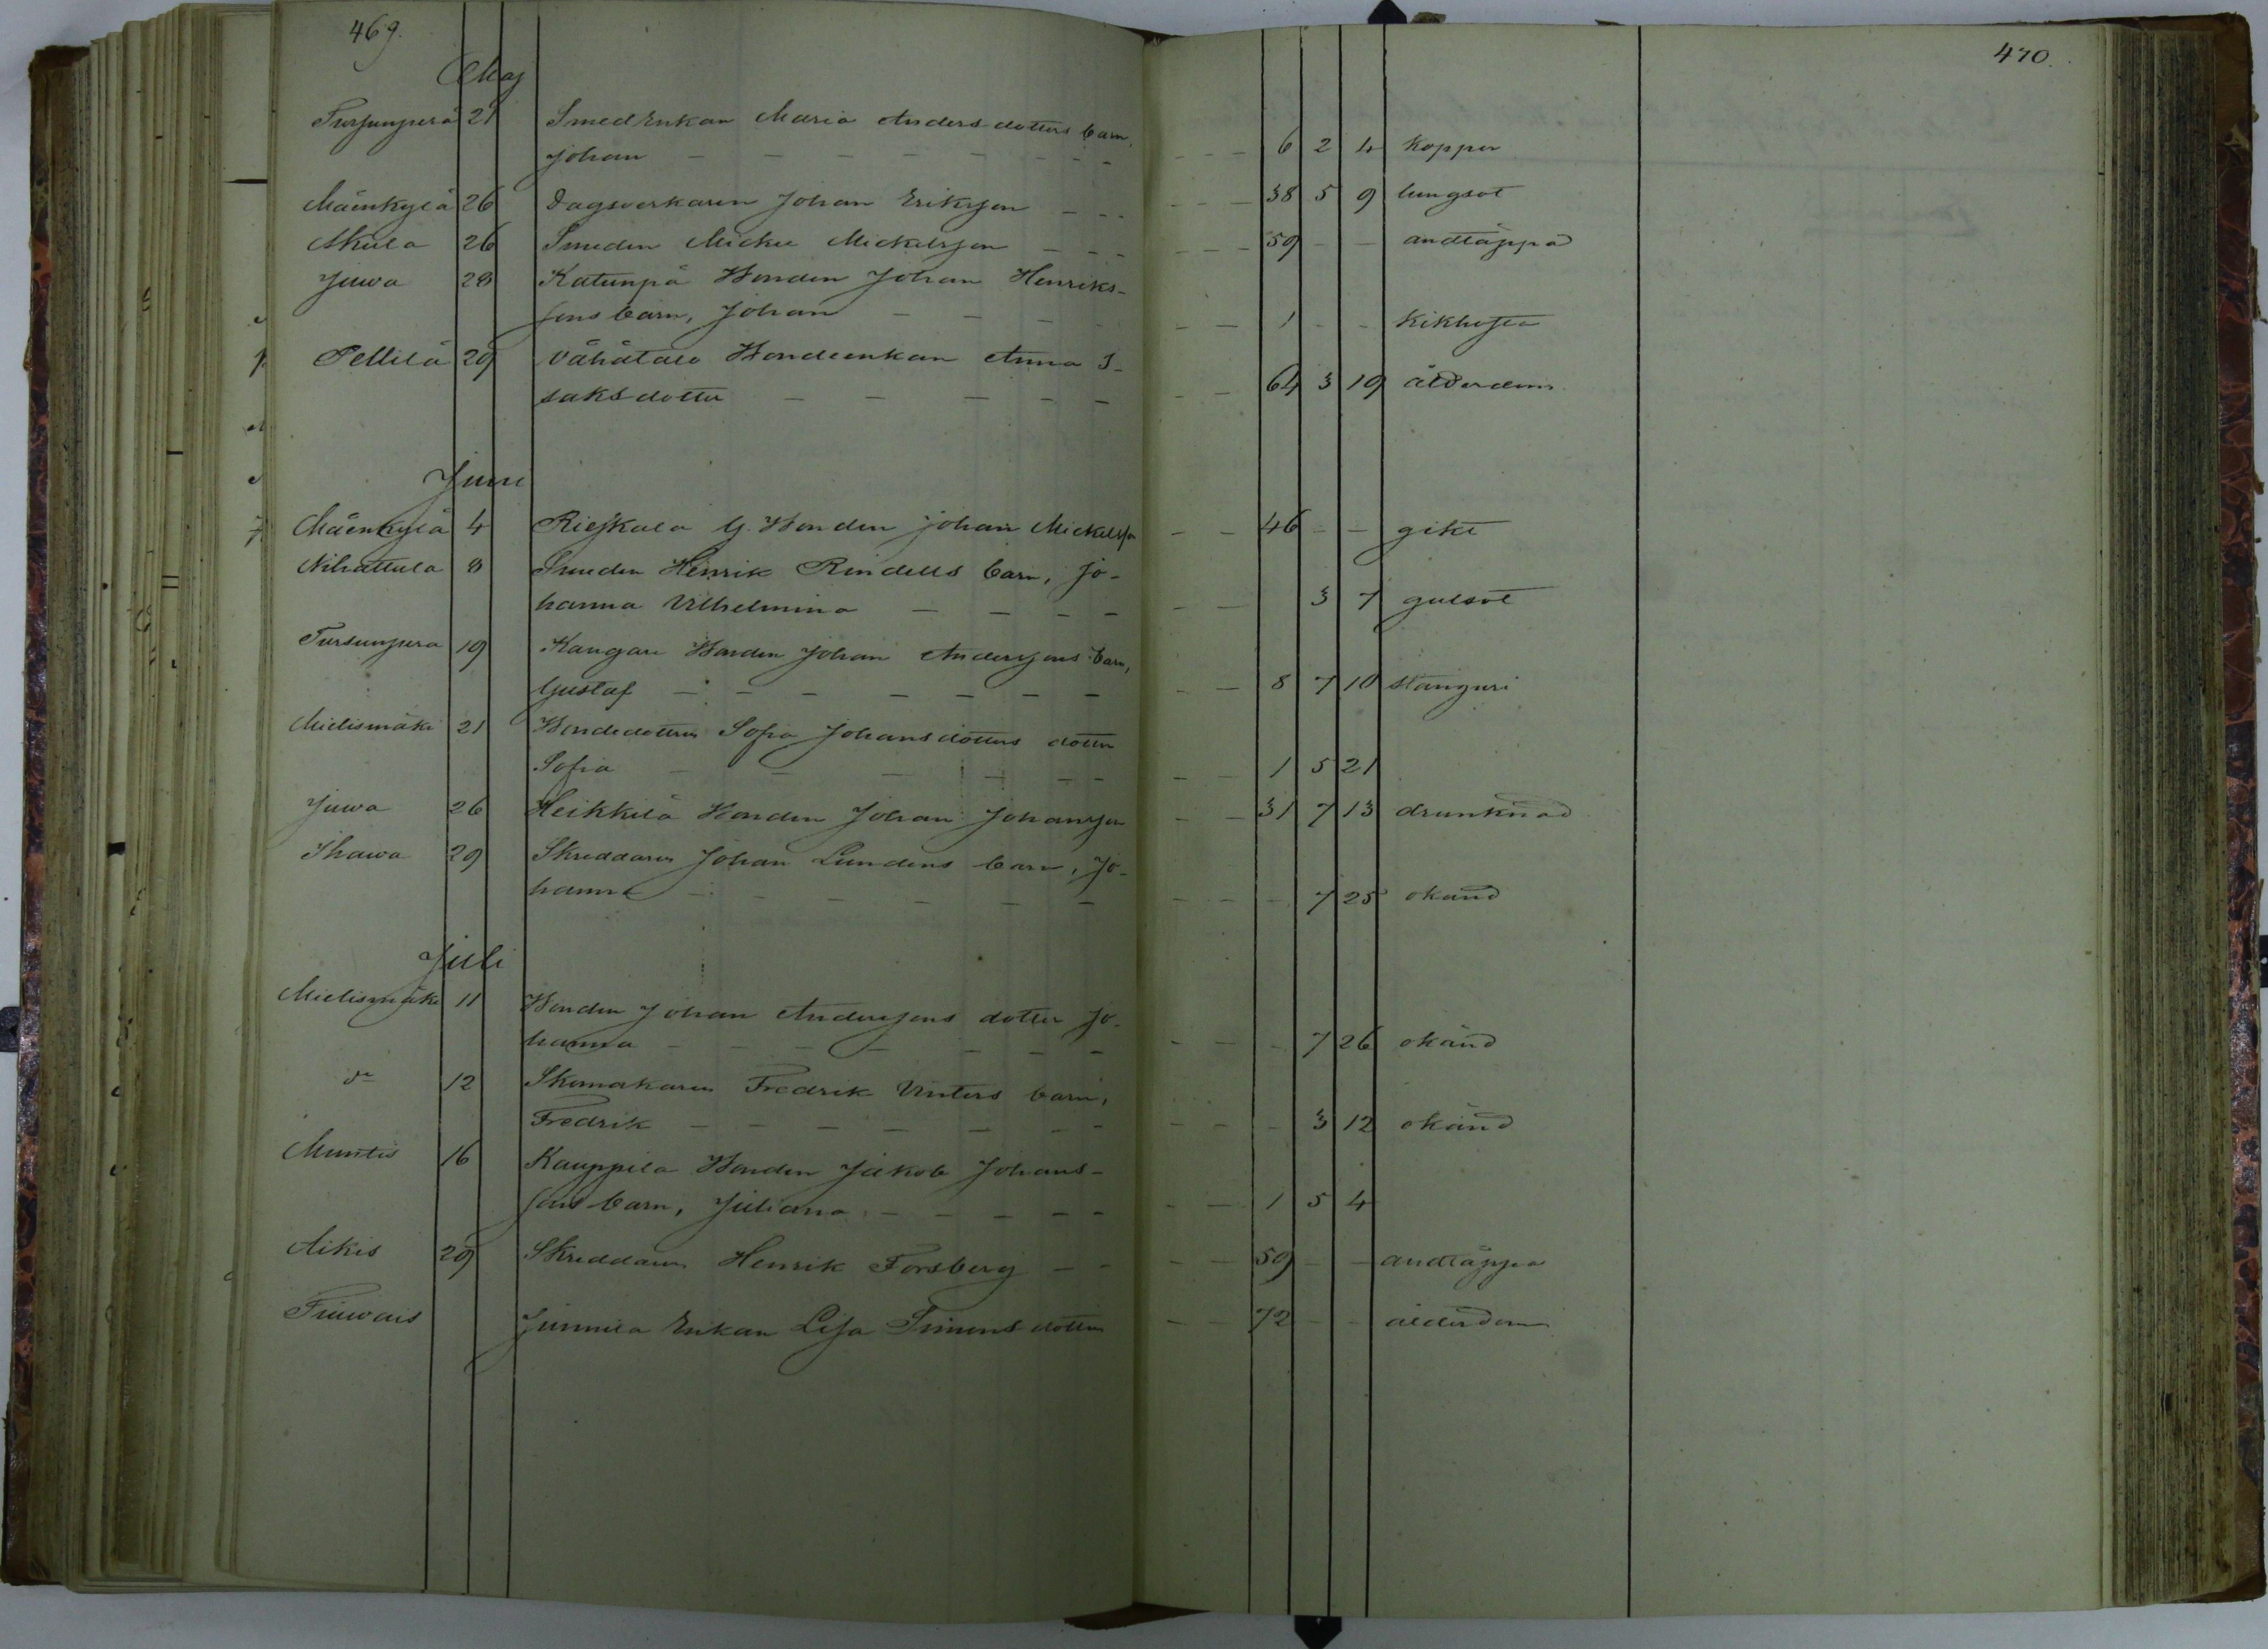 469.
470.
Maj
Tursunperä 21 Smedenkan Maria Andersdotters barn,
Johan — — — — — — — — 6 2 4 koppor
Mäenkylä 26 Dagsverkaren Johan Eriksson — — — 38 5 9 lungsot
Akula 26 Smeden Mickel Mickelsson — — — 59 — — andtäppa
Juwa 28 Katunpä Bonden Johan Henriks-
sons barn, Johan — — — — — 1 — — kikhosta
Pellilä 29 Vähätalo Bondeenkan Anna I-
saksdotter — — — — — — 64 3 19 ålderdom
Juni
Mäenkylä 4 Riejkala G. Bonden Johan Mickelss — — 46 — — gikt
Nihattula 8 Smeden Henrik Rindells barn, Jo-
hanna Vilhelmina — — — — — — 3 7 gulsot
Tursunpera 19 Kangare Bonden Johan Anderssons barn,
Gustaf — — — — — — — — 8 7 10 stånguri
Mielismäki 21 Bondedottren Sofia Johansdotters dotter
Sofia — — — — — — — — 1 5 21
Juwa 26 Heikkilä Bonden Johan Johansson — — 31 7 13 drunknad
Ihawa 29 Skreddaren Johan Lundens barn, Jo-
hanna — — — — — — — — — 7 25 okänd
Juli
Mielismäki 11 Bonden Johan Anderssons dotter Jo-
hanna — — — — — — — — — 7 26 okänd
do 12 Skomakaren Fredrik Vinters barn,
Fredrik — — — — — — — — — 3 12 okänd
Muntis 16 Kauppila Bonden Jakob Johans-
sons barn, Juliana — — — — — — — 1 5 4
Aikis 29 Skreddaren Henrik Forsberg — — — — 59 — — andtäppa
Finwais Junnila Enkan Lisa Simonsdotter — — 72 — — ålderdom